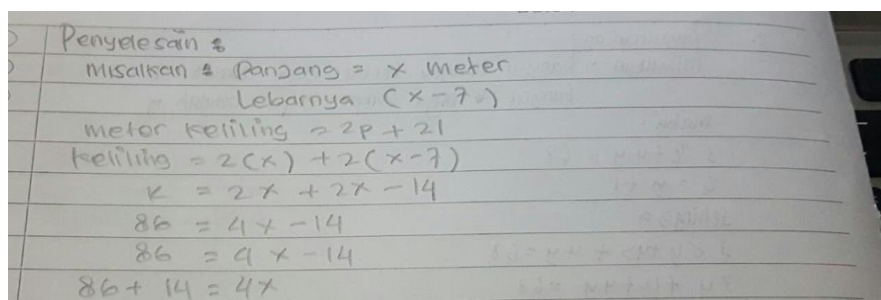 Penyelesain :
misalkan : Panjang = x meter
Lebarnya (x-7)
metor keliling = 2p + 2l
keliling = 2(x) + 2(x-7)
K = 2x + 2x - 14
86 = 4x - 14
86 = 4x - 14
86 + 14 = 4x